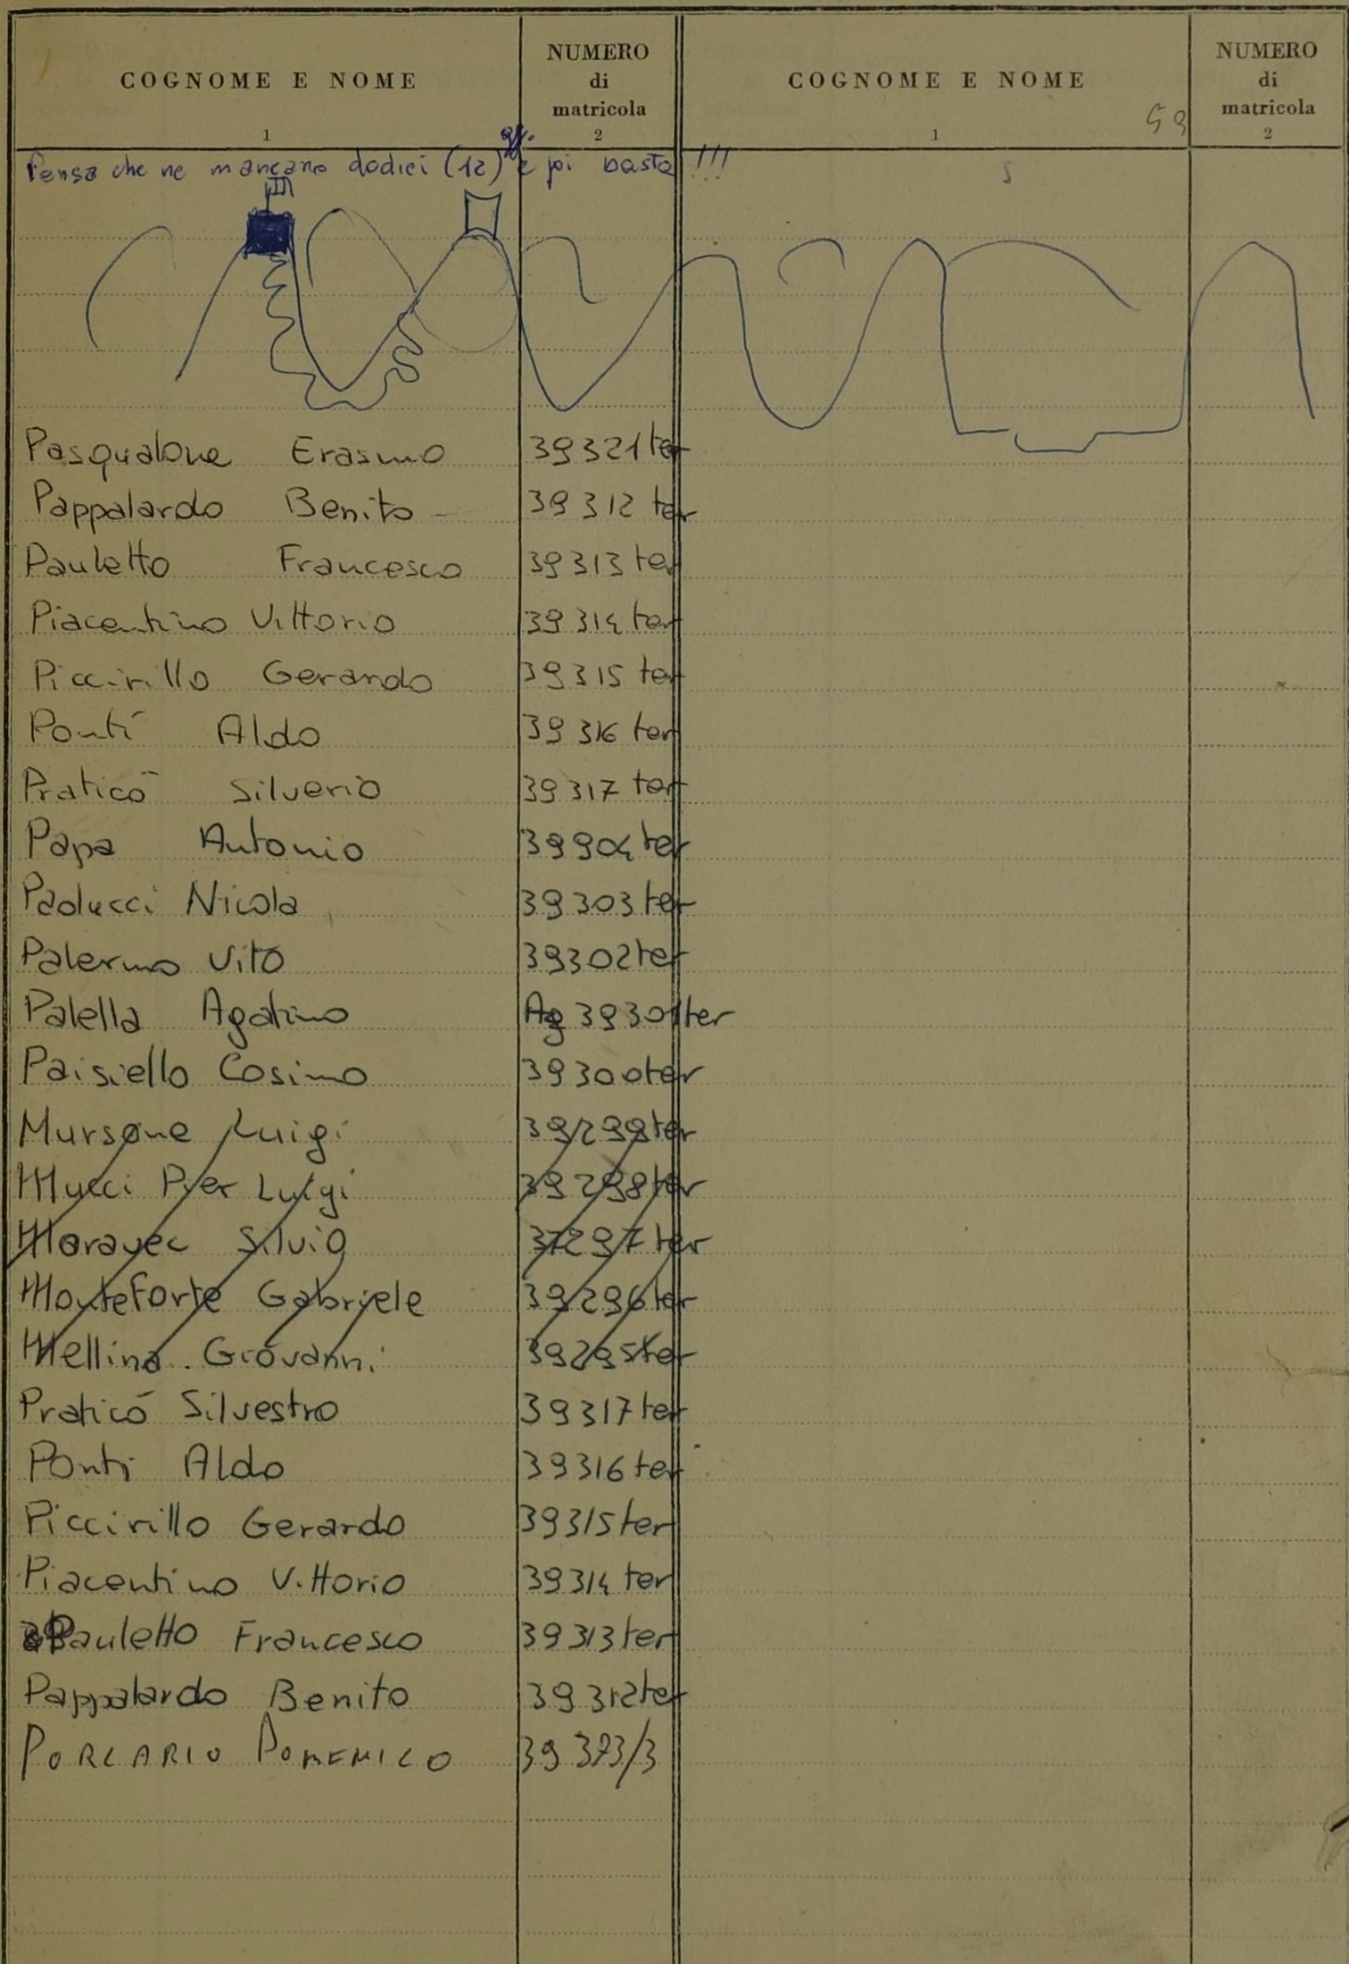 COGNOME E NOME NUMERO di matricola COGNOME E NOME NUMERO di matricola
1 2 1 2
59
Pensa che ne mancano dodici (12) gg. e poi basta !!!
Pasqualone Erasmo 39321 ter
Pappalardo Benito 39312 ter
Pauletto Francesco 39313 ter
Piacentino Vittorio 39314 ter
Piccirillo Gerardo 39315 ter
Ponti Aldo 39316 ter
Praticó Silverio 39317 ter
Papa Antonio 39904 ter
Paolucci Nicola 39303 ter
Palermo Vito 39302 ter
Palella Agatino Ag 39301 ter
Paisiello Cosimo 39300 ter
Mursone Luigi 39299 ter
Mucci Pier Luigi 39298 ter
Moravec Silvio 37297 ter
Monteforte Gabriele 39296 ter
Mellina Giovanni 39295 ter
Praticó Silvestro 39317 ter
Ponti Aldo 39316 ter
Piccirillo Gerardo 39315 ter
Piacentino Vittorio 39314 ter
Pauletto Francesco 39313 ter
Pappalardo Benito 39312 ter
PORCARIO DOMENICO 39373/3